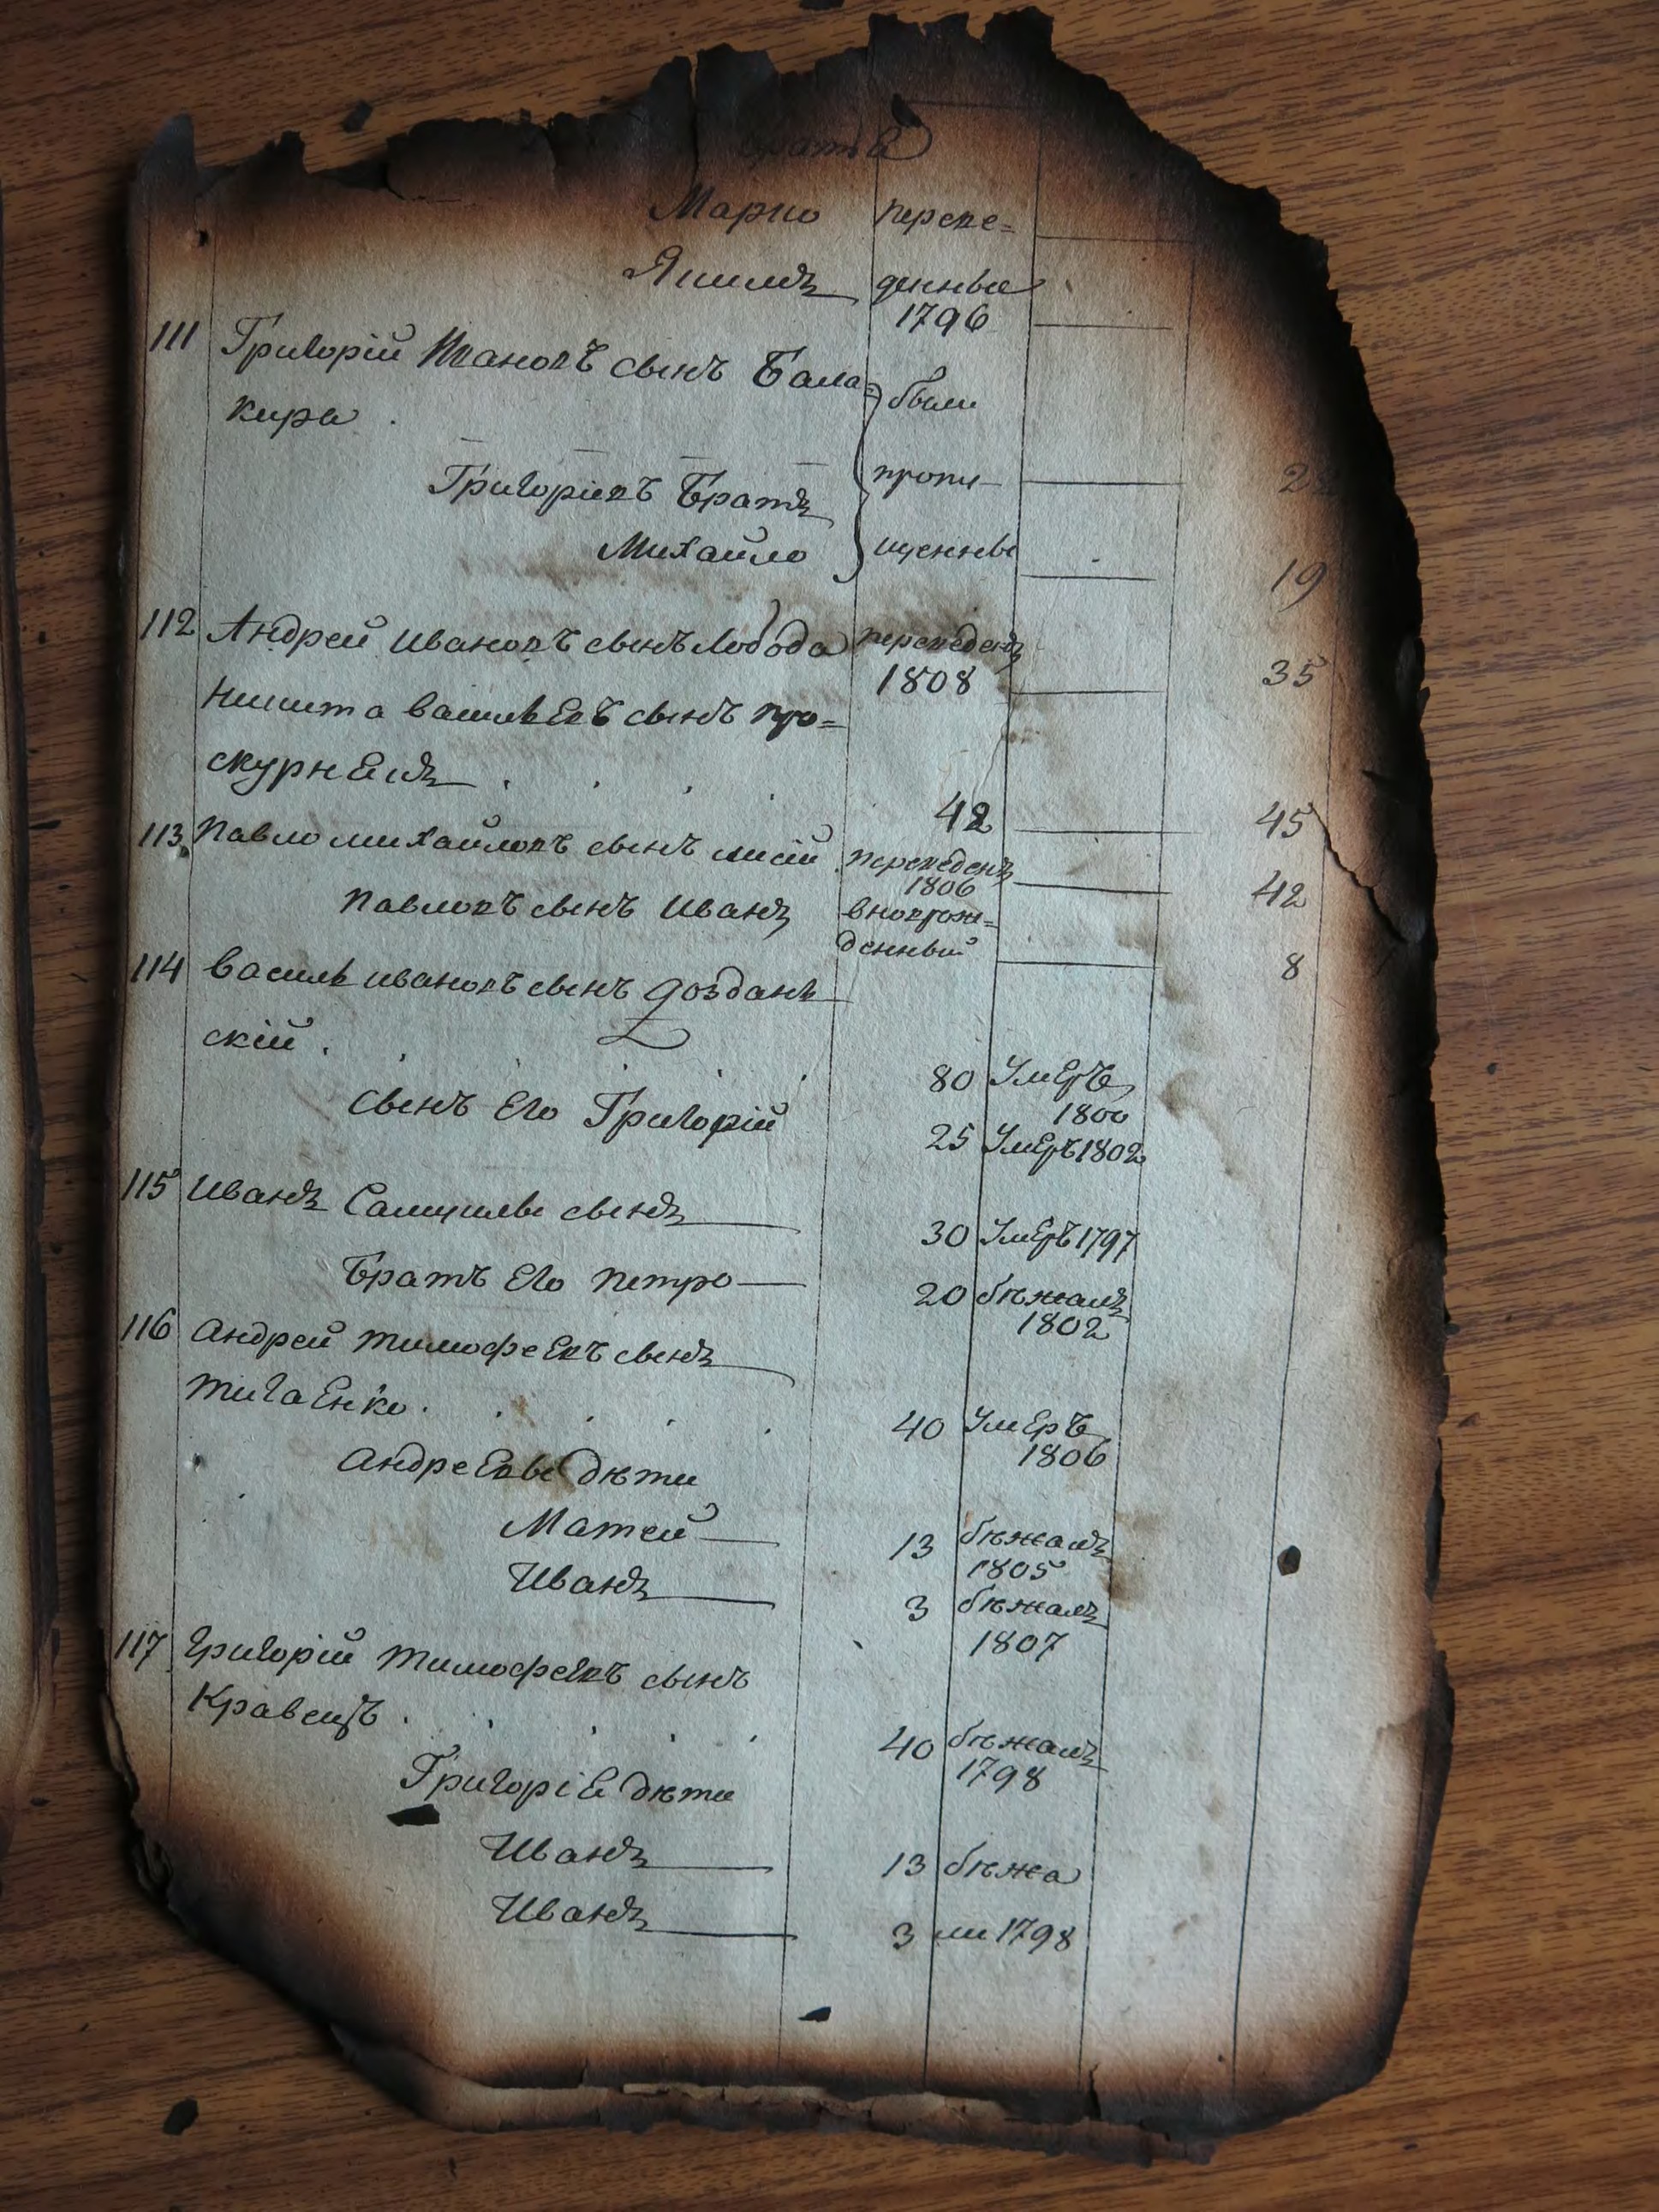 брата
Марко переве=
Якимъ денные
1796
111 Григорій Ивановъ сынъ Бала= были
кира .
Григоріевъ Братъ пропу-
Михайло щенны 19
112 Андрей Ивановъ сынъ Лобода переведенъ
1808 35
Никита Васильевъ сынъ Про=
скурнея
42 45
113 Павло Михайловъ сынъ Лисій переведенъ
1806 42
Павловъ сынъ Иванъ вноврож=
денный 8
114 Василь Ивановъ сынъ
скій . 80 Умеръ
1800
сынъ Его Григорій 25 Умеръ 1802
115 Иванъ Самуилы сынъ 30 Умеръ 1797
Братъ Его Петро 20 бѣжалъ
1802
116 Андрей Тимофеевъ сынъ
Тигаенко . 40 Умеръ
1806
Андреевы дѣти
Матей 13 бѣжалъ
1805
Иванъ 3 бѣжалъ
1807
117 Григорій Тимофеевъ сынъ
Кравецъ . 40 бѣжалъ
1798
Григоріе дѣти
Иванъ 13 бѣжа
Иванъ 3 ли 1798